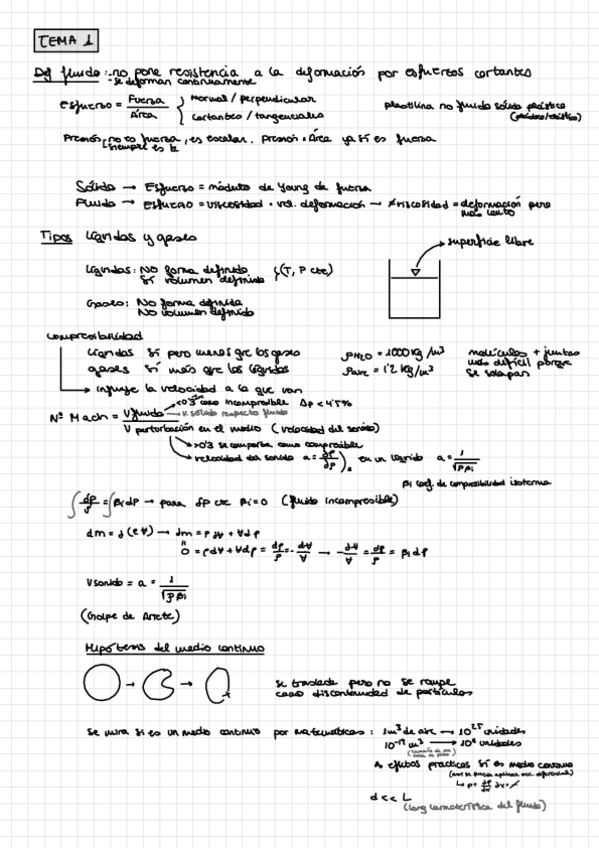 TEMA 1
Def fluido: - no pone resistencia a la deformación por esfuerzos cortantes
- se deforman continuamente
Esfuerzo = Fuerza / Área { normal / perpendicular
cortantes / tangenciales
plastilina no fluido sólido plástico
Presión: no es fuerza, es escalar. Presión · Área ya sí es fuerza
Sólido → Esfuerzo = módulo de Young de fuerza
Fluido → Esfuerzo = viscosidad · vel. deformación → ≠ viscosidad = deformación pero
más lento
Tipos líquidos y gases
superficie libre
Líquidos: No forma definida
Sí volumen definido } (T, P cte)
Gases: No forma definida
No volumen definido
compresibilidad
líquidos sí pero menos que los gases
gases sí más que los líquidos
ρH2O = 1000 kg/m³
ρaire = 1'2 kg/m³
moléculas + juntas
más difícil porque
se solapan
→ influye la velocidad a la que van
<0'3 caso incompresible Δρ < 4'5%
Nº Mach = V fluido → V sólido respecto fluido
V perturbación en el medio (velocidad del sonido)
>0'3 se comporta como compresible
velocidad del sonido a = dp/dρ)s en un líquido a = 1/√ρβi
βi coef. de compresibilidad isoterma
∫ dρ/ρ = ∫ βi dp → para ρ cte βi = 0 (fluido incompresible)
dm = d(ρ∀) → dm = ρd∀ + ∀dρ
0 = ρd∀ + ∀dρ = dρ/ρ = - d∀/∀ → - d∀/∀ = dρ/ρ = βi dp
Vsonido = a = 1/√ρβi
(Golpe de Ariete)
Hipótesis del medio continuo
se traslada pero no se rompe
como discontinuidad de partículas
Se mira si es un medio continuo por matemáticas: 1m³ de aire → 10²⁵ unidades
→ 10⁸ unidades
A efectos prácticos sí es medio continuo
d << L
(long característica del fluido)